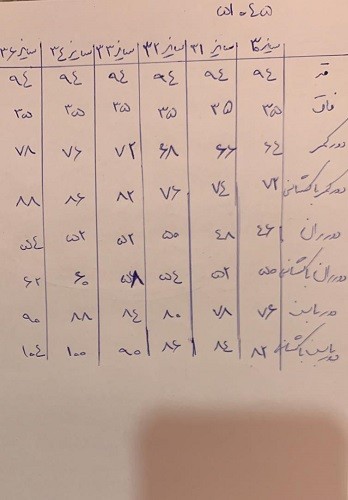 ۵۱۰۴۵
سایز ۳۰ سایز ۳۱ سایز ۳۲ سایز ۳۳ سایز ۳۴ سایز ۳۶
قد ۹۴ ۹۴ ۹۴ ۹۴ ۹۴ ۹۴
فاق ۳۵ ۳۵ ۳۵ ۳۵ ۳۵ ۳۵
دور کمر ۶۴ ۶۶ ۶۸ ۷۲ ۷۶ ۷۸
دور کمر با کشسانی ۷۲ ۷۴ ۷۶ ۸۲ ۸۶ ۸۸
دور ران ۴۶ ۴۸ ۵۰ ۵۲ ۵۲ ۵۴
دور ران با کشسانی ۵۰ ۵۲ ۵۴ ۵۸ ۶۰ ۶۲
دور باسن ۷۶ ۷۸ ۸۰ ۸۴ ۸۸ ۹۰
دور باسن با کشسانی ۸۲ ۸۴ ۸۶ ۹۰ ۱۰۰ ۱۰۴